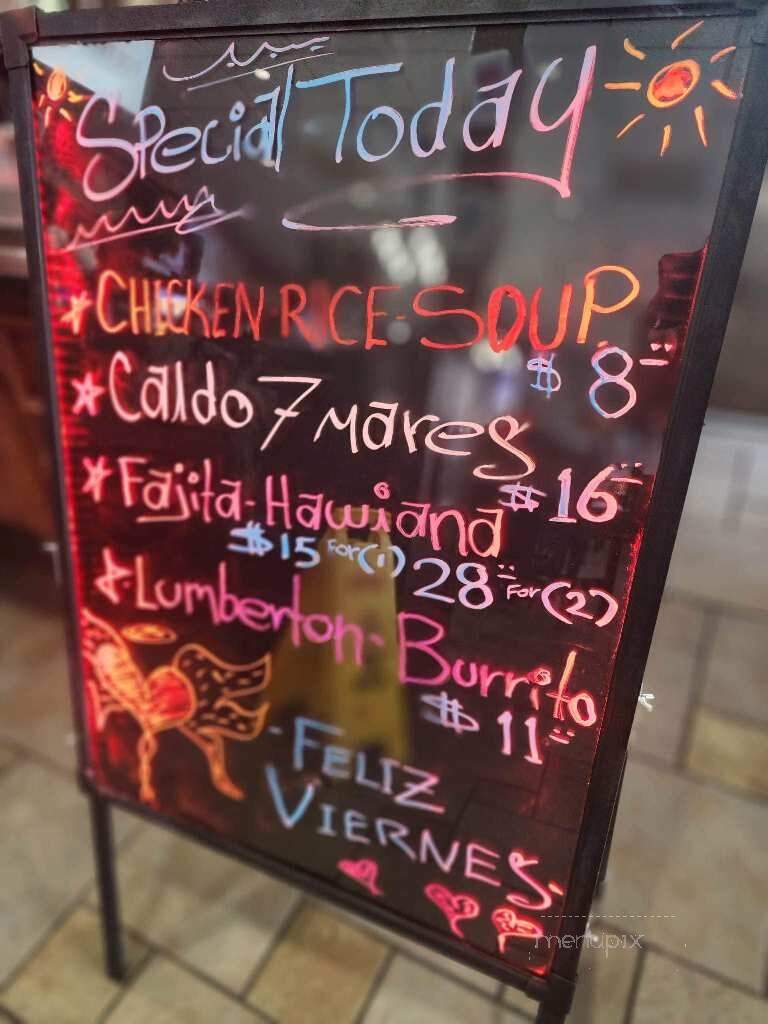 Special Today
CHICKEN RICE-SOUP.
$ 8=
Caldo 7 mares
$ 16=
Fajita-Hawiana
$15 For(1) 28= For(2)
Lumberton-Burrito
$ 11=
-FELIZ
VIERNES-
menupix